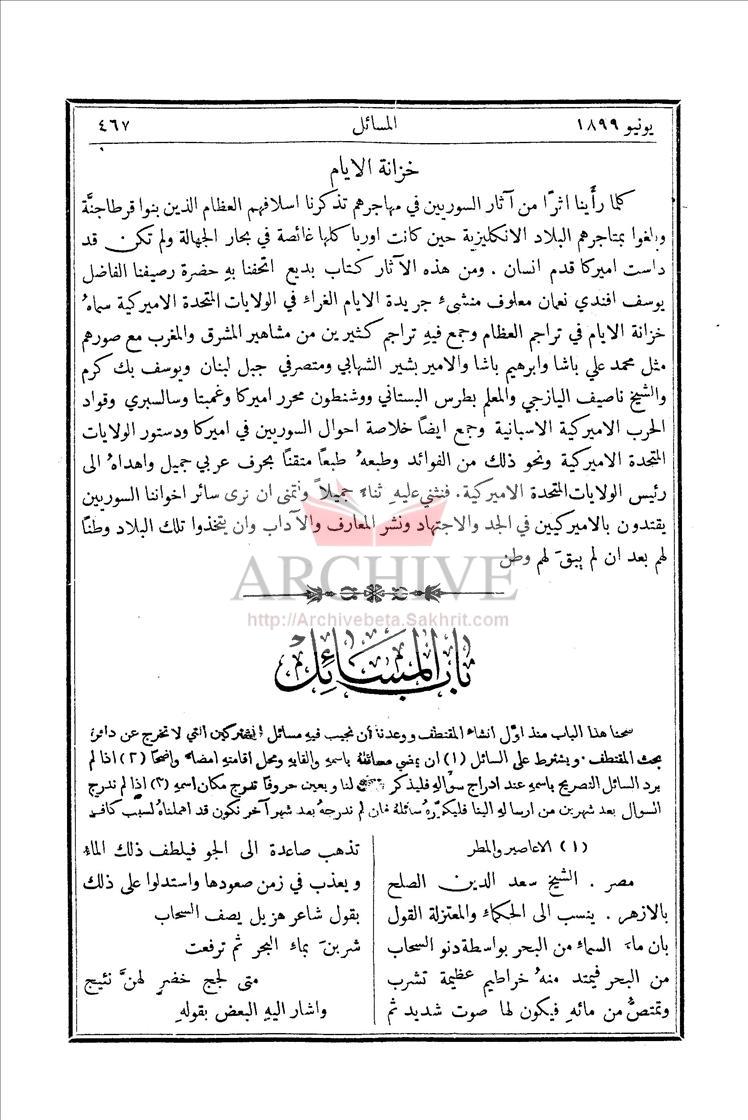 يونيو ١٨٩٩
المسائل
٤٦٧
خزانة الايام
كلما رأينا اثرًا من آثار السوريين في مهاجرهم تذكرنا اسلافهم العظام الذين بنوا قرطاجنَّة
وبلغوا بمتاجرهم البلاد الانكليزية حين كانت اوربا كلها غائصة في بحار الجهالة ولم تكن قد
داست اميركا قدم انسان . ومن هذه الآثار كتاب بديع اتحفنا به حضرة رصيفنا الفاضل
يوسف افندي نعمان معلوف منشىء جريدة الايام الغراء في الولايات المتحدة الاميركية سماهُ
خزانة الايام في تراجم العظام وجمع فيه تراجم كثيرين من مشاهير المشرق والمغرب مع صورهم
مثل محمد علي باشا وابرهيم باشا والامير بشير الشهابي ومتصرفي جبل لبنان ويوسف بك كرم
والشيخ ناصيف اليازجي والمعلم بطرس البستاني ووشنطون محرر اميركا وغمبتا وسالسبري وقواد
الحرب الاميركية الاسبانية وجمع ايضًا خلاصة احوال السوريين في اميركا ودستور الولايات
المتحدة الاميركية ونحو ذلك من الفوائد وطبعهُ طبعًا متقنًا بحرف عربي جميل واهداهُ الى
رئيس الولايات المتحدة الاميركية. فنثني عليهِ ثناءً جميلاً ونتمنى ان نرى سائر اخواننا السوريين
يقتدون بالاميركيين في الجد والاجتهاد ونشر المعارف والآداب وان يتخذوا تلك البلاد وطنًا
لهم بعد ان لم يبقَ لهم وطن
ARCHIVE
http://Archivebeta.Sakhrit.com
باب المسائل
فتحنا هذا الباب منذ اوَّل انشاء المقتطف ووعدنا أن نجيب فيه مسائل المشتركين التي لا تخرج عن دائرة
بحث المقتطف . ويشترط على السائل (١) ان يمضي مسائلهُ باسمه والقابه ومحل اقامته امضاءً واضحًا (٢) اذا لم
يرد السائل التصريح باسمه عند ادراج سؤاله فليذكر ذلك لنا ويعين حروفًا تدرج مكان اسمه (٣) اذا لم ندرج
السؤال بعد شهرين من ارساله الينا فليكررهُ سائلهُ فان لم ندرجهُ بعد شهر آخر نكون قد اهملناهُ لسبب كافٍ
(١) الاعاصير والمطر
مصر . الشيخ سعد الدين الصلح
بالازهر . ينسب الى الحكماء والمعتزلة القول
بان ماء السماء من البحر بواسطة دنو السحاب
من البحر فيمتد منهُ خراطيم عظيمة تشرب
وتمتصُّ من مائهِ فيكون لها صوت شديد ثم
تذهب صاعدة الى الجو فيلطف ذلك الماء
ويعذب في زمن صعودها واستدلوا على ذلك
بقول شاعر هزيل يصف السحاب
شربنَ بماء البحر ثم ترفعت
متى لجج خضرٍ لهنَّ نئيج
واشار اليهِ البعض بقولهِ